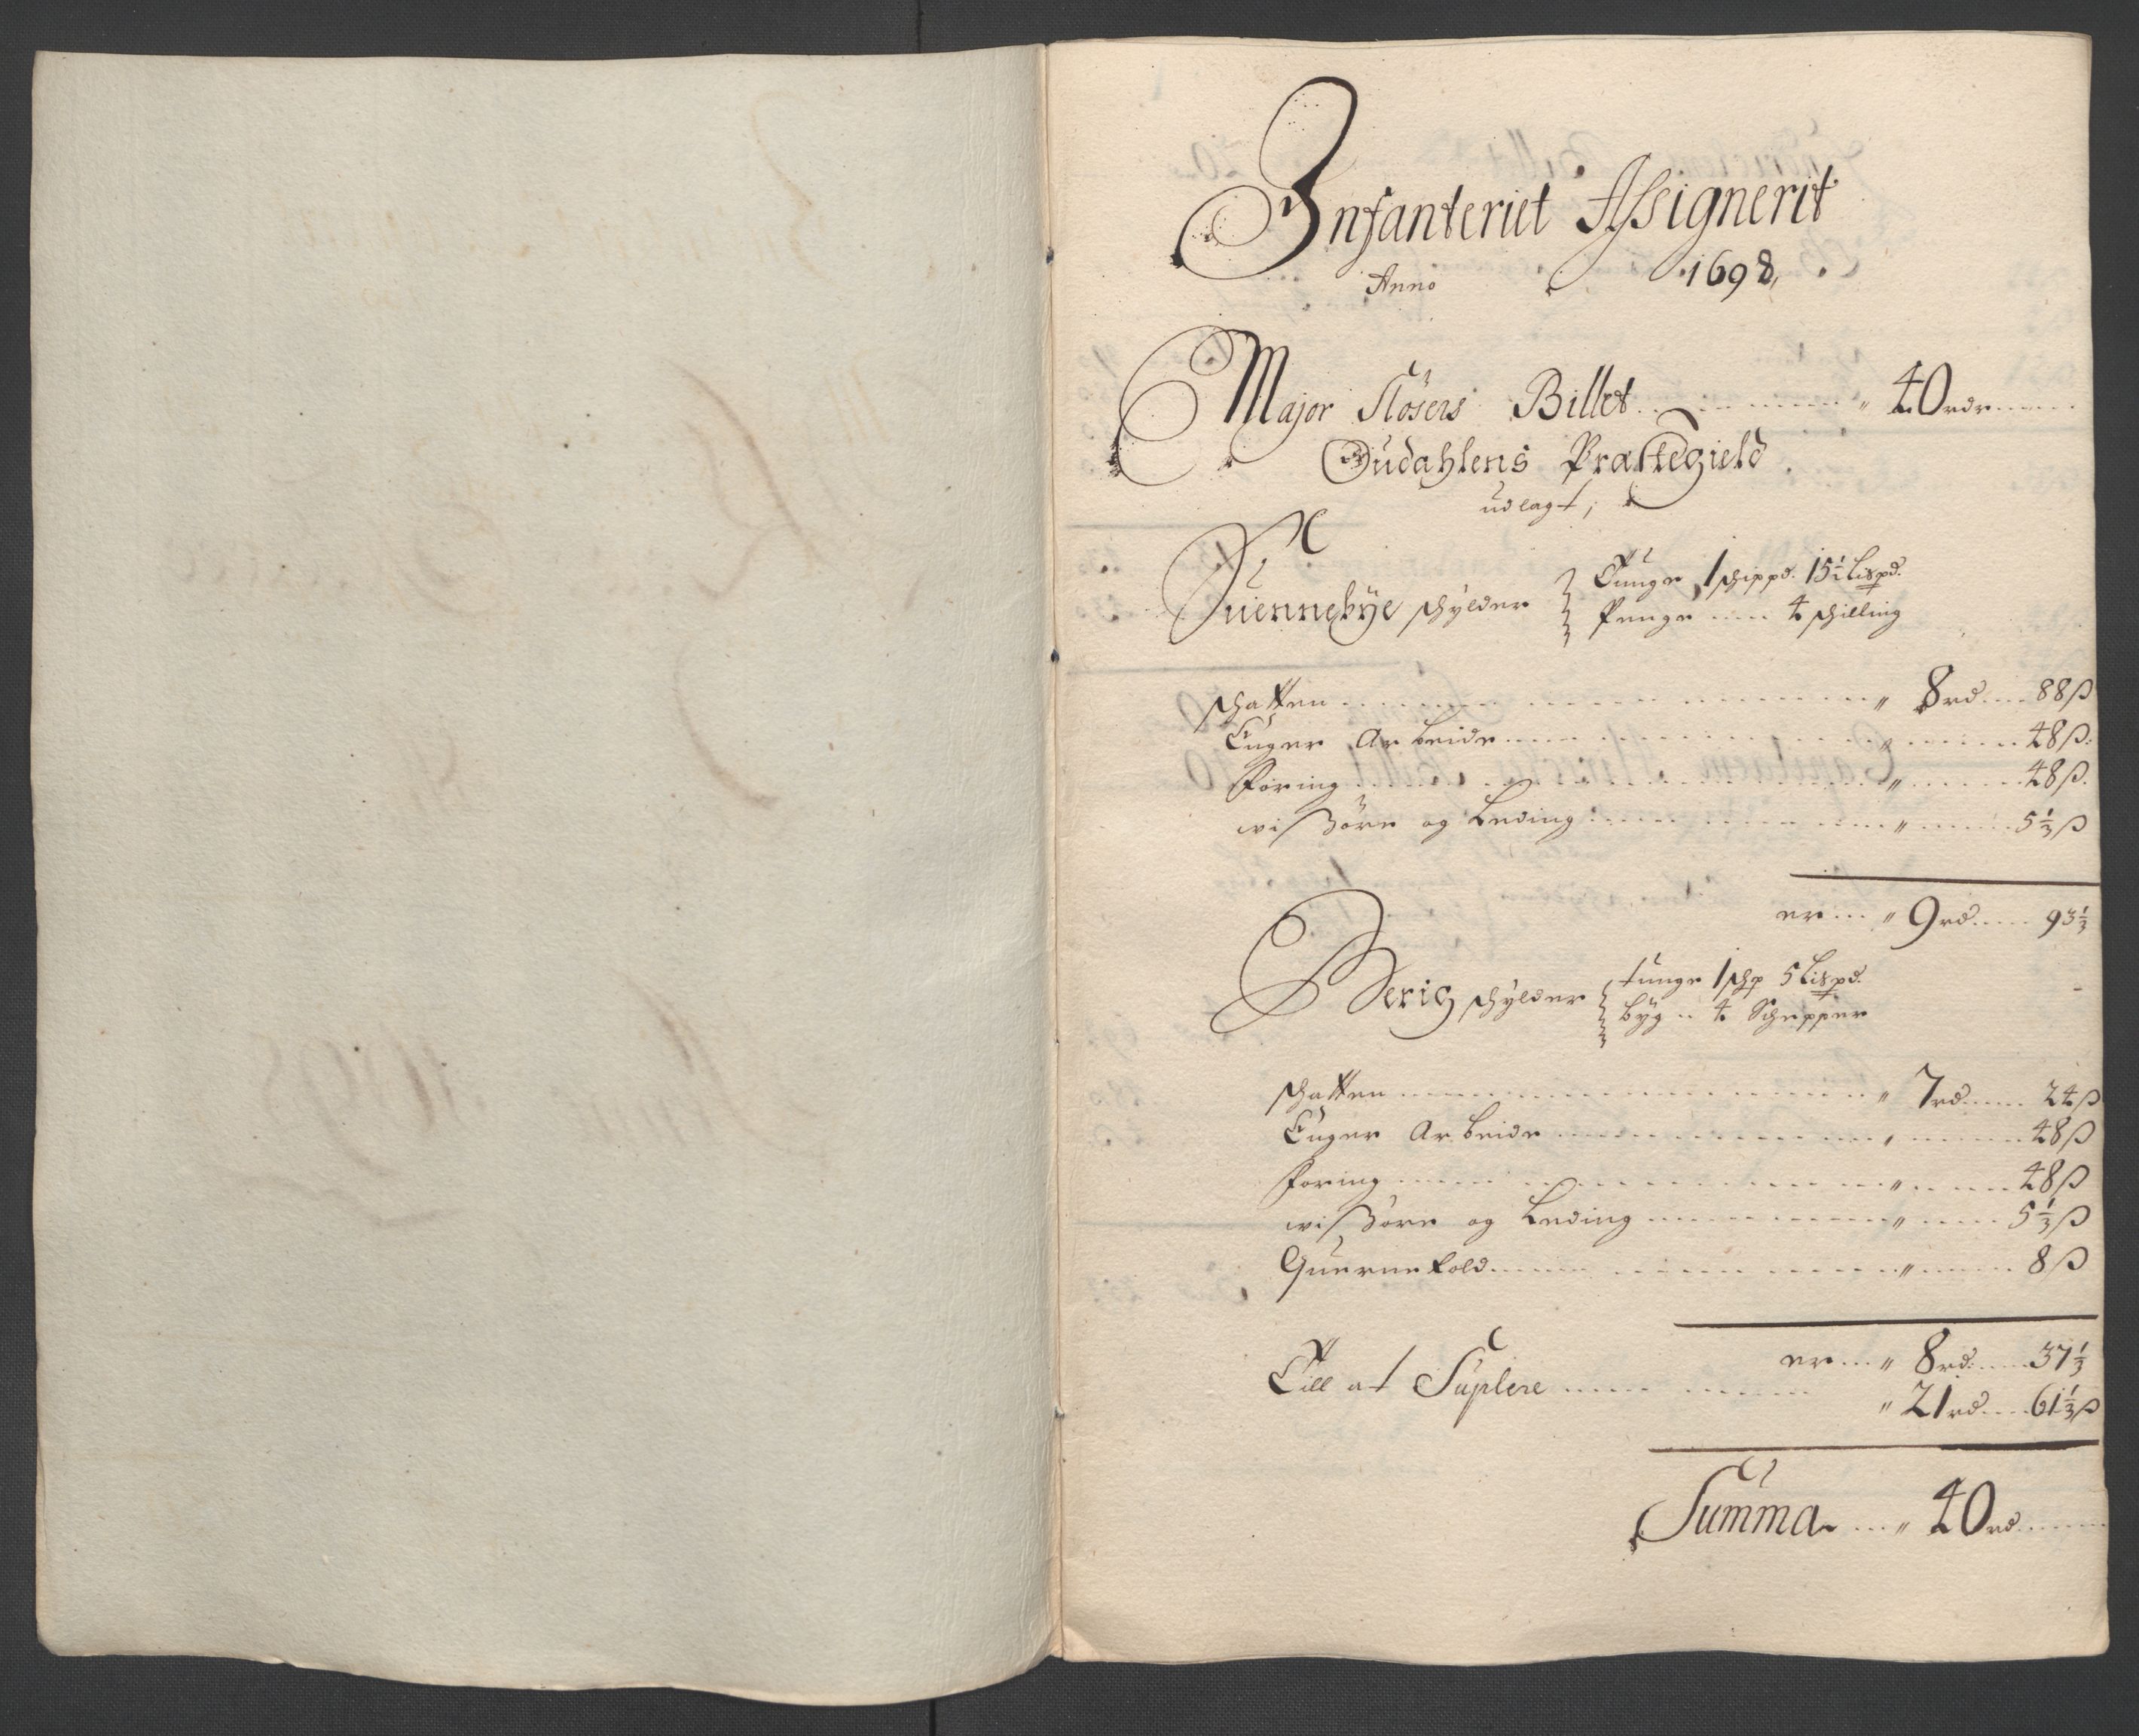 Infanteriet Assignerit
Anno 1698,
Major Slösers Billet 40 rdr
Gudahlens Præstegield
udlagt;
Tuennebye schylder
Tunge 1 schippd. 15½ Lispd.
Penge 4 schilling
schatten 8 rd 88 ß
Leger Arbeide 48 ß.
Foring 48 ß.
wisöre og Leding 5⅓ ß
er 9 rd 93⅓
Berig schylder
tunge 1 schp 5 Lispd.
byg 4 Schepper
schatten 7 rd 24 ß
Leger Arbeide 48 ß
Foring 48 ß
wisöre og Leding 5⅓ ß
Quernetold 8 ß
er 8 rd. 37⅓
Till at Suplere 21 rd 61⅓ ß
Summa 40 rd